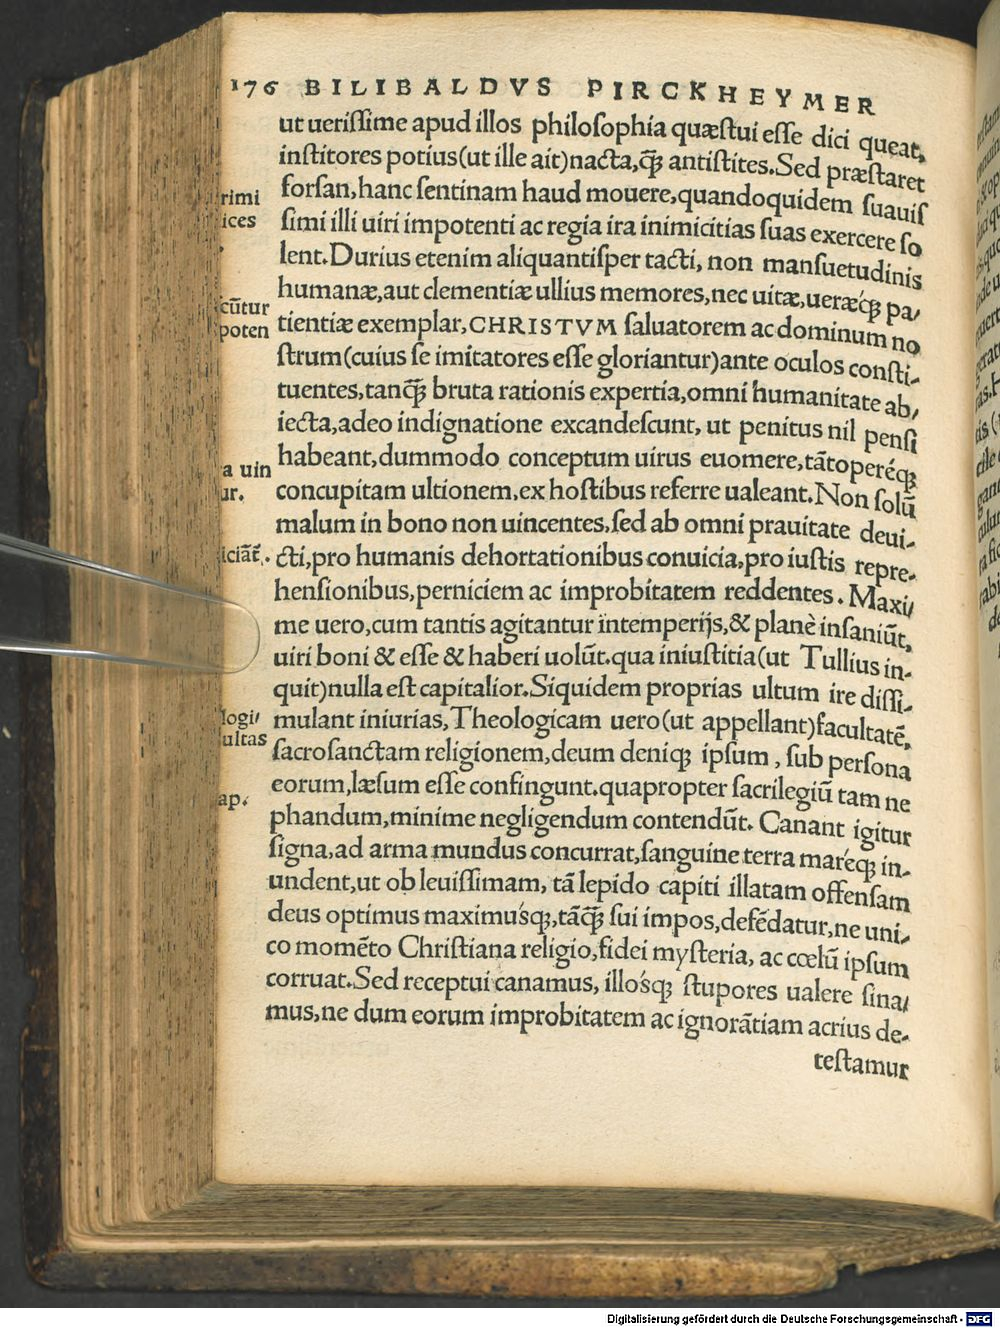 176 BILIBALDVS PIRCKHEYMER
ut ueriſſime apud illos philoſophia quæſtui eſſe dici queat,
inſtitores potius(ut ille ait)nacta,q̃ꝫ antiſtites.Sed præſtaret
forſan,hanc ſentinam haud mouere,quandoquidem ſuauiſ
ſimi illi uiri impotenti ac regia ira inimicitias ſuas exercere ſo
lent.Durius etenim aliquantiſper tacti, non manſuetudinis
humanæ,aut clementiæ ullius memores,nec uitæ,ueræq́ꝫ pa/
tientiæ exemplar,CHRISTVM ſaluatorem ac dominum no
ſtrum(cuius ſe imitatores eſſe gloriantur)ante oculos conſti-
tuentes,tanq̃ꝫ bruta rationis expertia,omni humanitate ab/
iecta,adeo indignatione excandeſcunt, ut penitus nil penſi
habeant,dummodo conceptum uirus euomere,tãtoperéqꝫ
concupitam ultionem,ex hoſtibus referre ualeant.Non ſolũ
malum in bono non uincentes,ſed ab omni prauitate deui-
cti,pro humanis dehortationibus conuicia,pro iuſtis repre-
henſionibus,perniciem ac improbitatem reddentes. Maxi/
me uero,cum tantis agitantur intemperijs,& planè inſaniũt,
uiri boni & eſſe & haberi uolũt.qua iniuſtitia(ut Tullius in-
quit)nulla eſt capitalior.Siquidem proprias ultum ire diſſi-
mulant iniurias,Theologicam uero(ut appellant)facultatẽ,
ſacroſanctam religionem,deum deniqꝫ ipſum, ſub perſona
eorum,læſum eſſe confingunt.quapropter ſacrilegiũ tam ne
phandum,minime negligendum contendũt. Canant igitur
ſigna,ad arma mundus concurrat,ſanguine terra maréqꝫ in-
undent,ut ob leuiſſimam, tã lepido capiti illatam offenſam
deus optimus maximuśqꝫ,tãq̃ꝫ ſui impos,defẽdatur,ne uni-
co momẽto Chriſtiana religio,fidei myſteria, ac cœlũ ipſum
corruat.Sed receptui canamus, illośqꝫ ſtupores ualere ſina/
mus,ne dum eorum improbitatem ac ignorãtiam acrius de-
teſtamur
rimi
ices
cũtur
poten
a uin
ur.
iciãt̃.
logi/
ultas
ap.
Digitalisierung gefördert durch die Deutsche Forschungsgemeinschaft - DFG